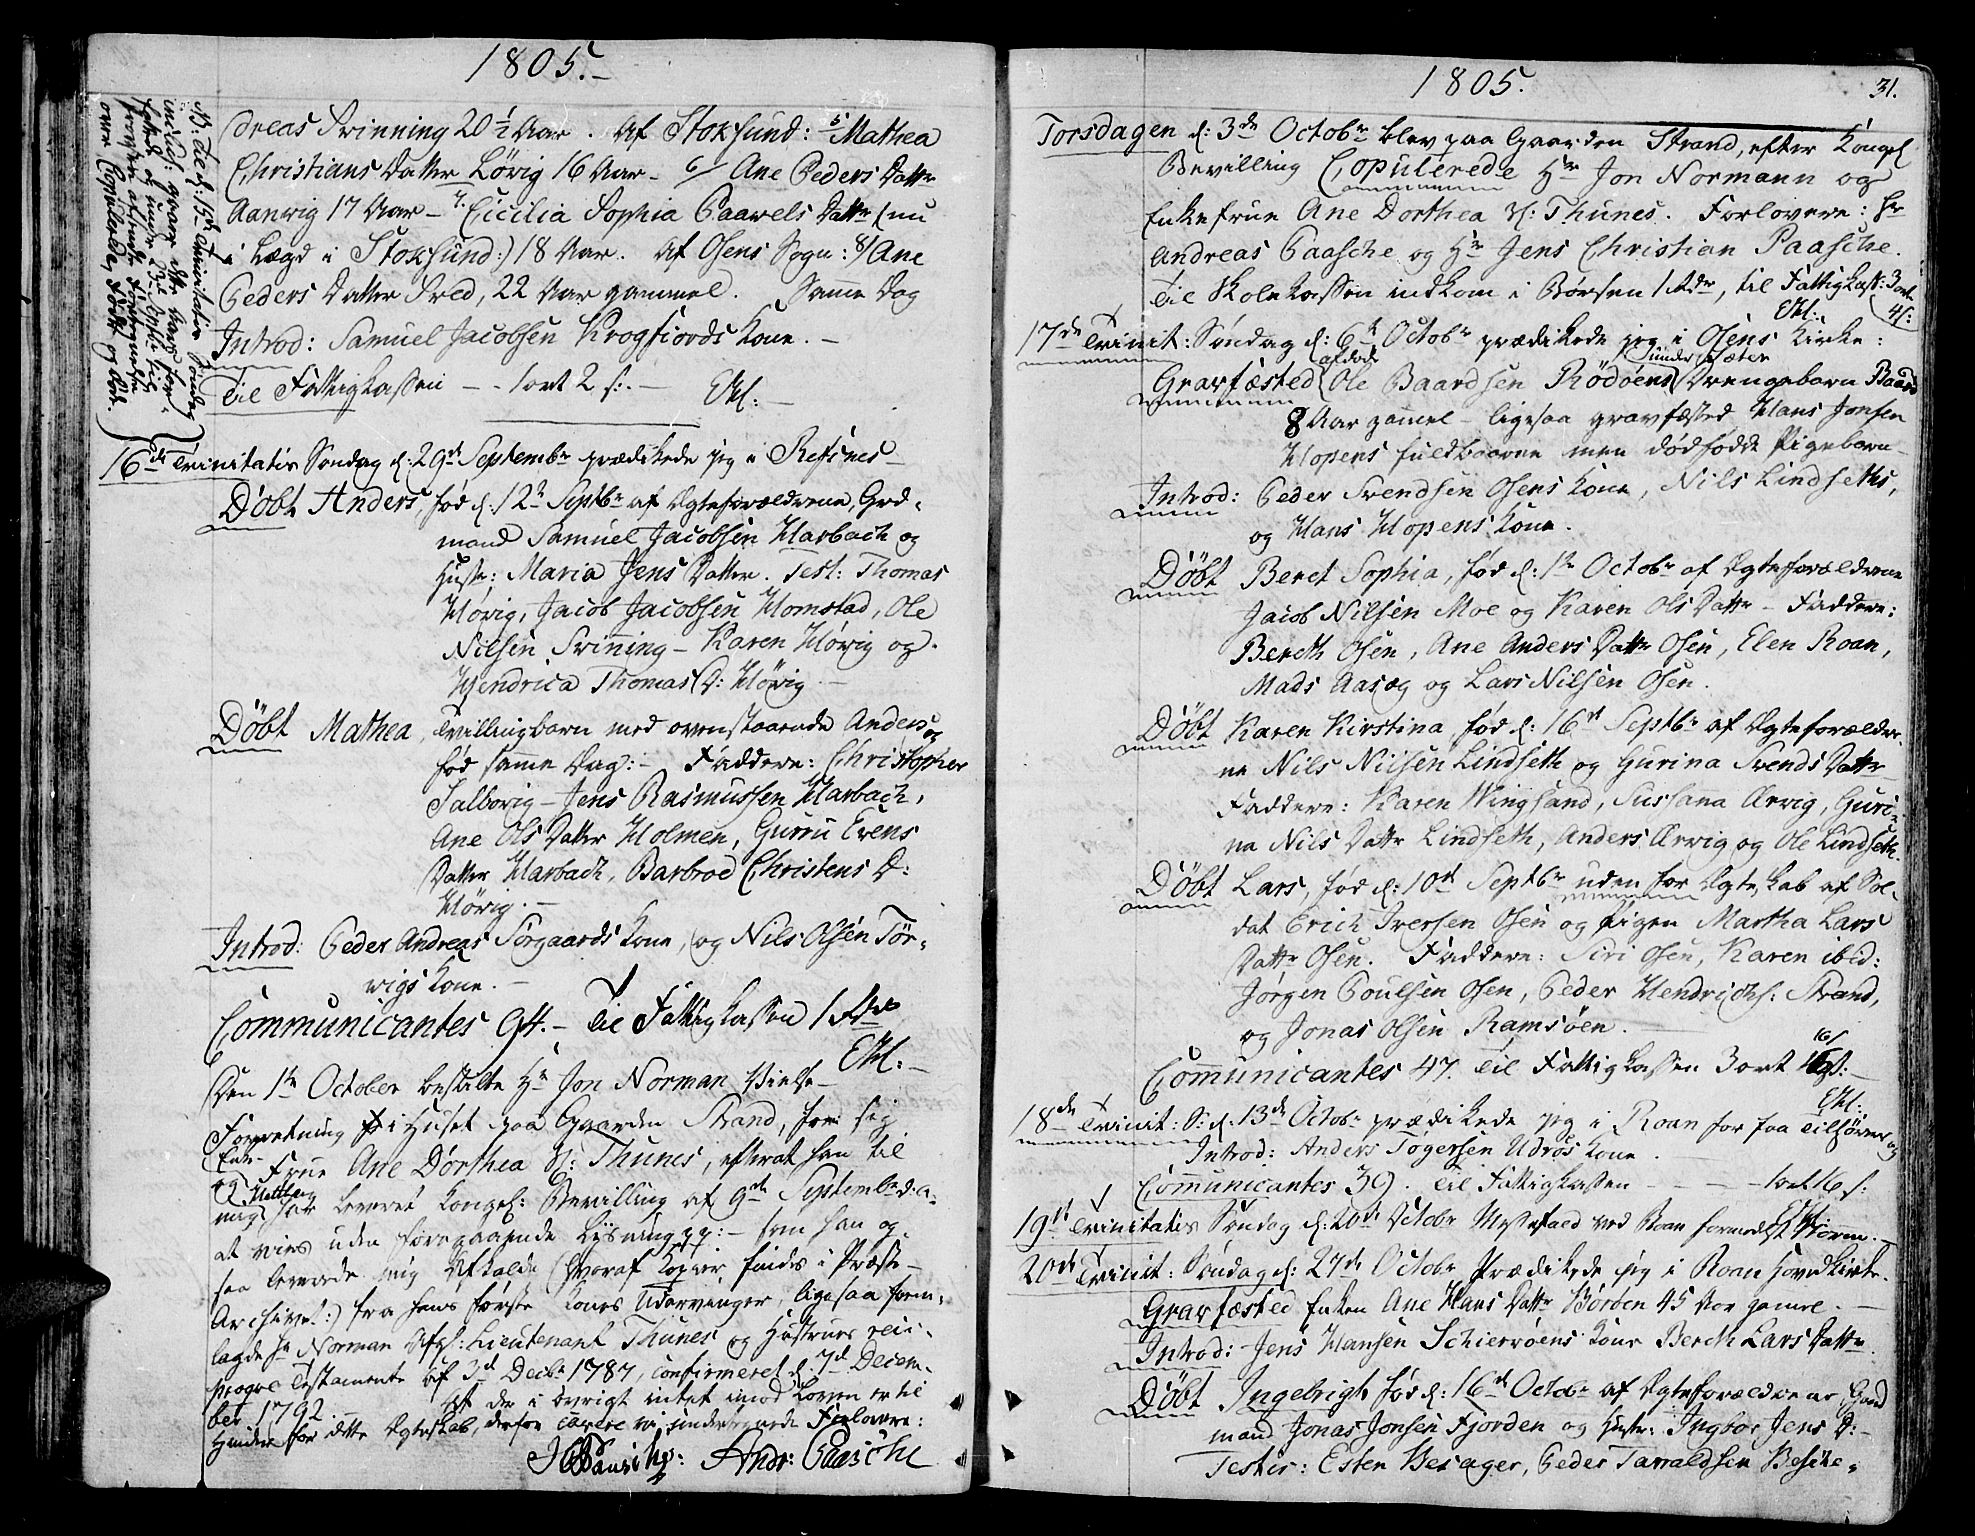 1805.-
dreas Svinning 20 1/2 Aar. Af Stoksund: 5 Mathea
Christians Datter Lörig 16 Aar - 6/ Ane Peders Dattr
Aanvig 17 Aar - 7. Cicilia Sophia Paavels Dattr (nu
i Lægd i Stoksund:) 18 Aar. Af Osens Sogn: 8/ Ane
Peders Datter Sved, 22 Aar gammel. Samme Dag
Introd: Samuel Jacobsen Krogfiords Kone. -
Til Fattigkassen - - 1 ort 2 s:. - EHl: -
16de Trinitatis Søndag d: 29de Septembr prædikede jeg i Refsnes -
Döbt Anders, fød d: 12te Septbr af Ægteforældrene, Grd-
mand Samuel Jacobsen Harbach og
Hustr: Maria Jens Datter. Test: Thomas
Hövig, Jacob Jacobsen Homstad, Ole
Nilsen Svinning - Karen Hövig og
Hendrica Thomas D: Hövig. -
Döbt Mathea, Tvillingbarn med ovenstaaende Anders og
fød samme Dag: - Faddere: Christopher
Salborig - Jens Rasmussen Harbach,
Ane Ols Datter Holmen, Gurru Evens
Datter Harbach, Barbroe Christens D:
Hövig. -
Introd: Peder Andreas Sorgaards Kone, og Nils Olsen Tör-
vigs Kone. -
Communicantes 94. - Til Fattigkassen 1 Rdr
EHl: -
Den 1te October bestilte Hr Jon Norman Vielse-
Forretning i Huset paa Gaarden Strand, for sig
og Enke-Frue Ane Dorthea Sl: Thunes, efterat han til
mig har leveret Kongel: Bevilling af 9de Septembr d: a:
at vies uden foregaaende Lysning pp: - som han og
saa leverede mig Afkald (hvoraf Copier findes i Præste-
Archivet:) fra hans første Kones Udarvinger, ligesaa frem-
lagde Hr Norman Afgl: Lieutenant Thunes og Hustrues reci-
proque Testamente af 3d Decbr 1787, confirmeret d: 7d Decem-
ber 1792. At der i øvrigt intet imod Loven er til
Hinder for dette Ægteskab, derfor cavere vi undertegnede Forlovere:
Andr: Paasche
1805.
31.
Torsdagen d: 3de Octobr blev paa Gaarden Strand, efter Kongel
Bevilling Copulerede Hr Jon Normann og
Enkefrue Ane Dorthea Sl: Thunes. Forlovere: Hr
Andreas Paasche og Hr Jens Christian Paasche.
Til Skolekassen indkom i Børsen 1 Rdr, til Fattigkass: 3 ort
EHl: 4 s:
17de Trinit: Søndag d: 6te Octobr prædikede jeg i Osens Kirke:
Gravfæsted afdøde Ole Baardsen Rödöens Drengebarn Baard
8 Aar gamel - ligesaa gravfæsted Hans Jonsen
Hopens fuldbaarne men dødfødde Pigebarn -
Introd: Peder Svendsen Osens Kone, Nils Lindseths,
og Hans Hopens Kone.
Döbt Beret Sophia, fød d: 1te Octobr af Ægteforældrene
Jacob Nilsen Moe og Karen Ols Dattr - Faddere:
Bereth Osen, Ane Anders Dattr Osen, Elen Roan,
Mads Aasæg og Lars Nilsen Osen.
Döbt Karen Kirstina fød d: 16de Septbr af Ægteforældre-
ne Nils Nilsen Lindseth og Gurina Svends Dattr
Faddere: Karen Wingsand, Sussana Ærvig, Guri-
na Nils Dattr Lindseth, Anders Ærvig og Ole Lindseth.
Döbt Lars, fød d: 10de Septbr uden for Ægteskab af Sol-
dat Erich Iversen Osen og Pigen Martha Lars
Dattr Osen. Faddere: Siri Osen, Karen ibid:
Jörgen Poulsen Osen, Peder Hendrichs: Strand,
og Jonas Olsen Ramsöen.
Communicantes 47. Til Fattigkassen 3 ort 16 s: -
EHl:
18de Trinit: S: d: 13de Octobr prædikede jeg i Roan for faa Tilhörere og
Introd: Anders Tögersen Udröes Kone.
Communicantes 39. Til Fattigkassen - - - - 1 ort 16 s:
EHl
19de Trinitatis Søndag d: 20de Octobr Messefald ved Roan formedelst Storm. -
20de Trinit: Søndag d: 27de Octobr Prædikede jeg i Roan Hovedkirke.
Gravfæsted Enken Ane Hans Dattr Böröen 45 Aar gamel. -
Introd: Jens Hansen Schiervöens Kone Bereth Lars Dattr.
Döbt Ingebrigt fød d: 16de Octobr af Ægteforældrene, Gaard
mand Jonas Jonsen Fjorden og Hustr: Ingbor Jens D: -
Testes: Esten Besager, Peder Tarraldsen Beskie-
NB: Til d: 15de Trinitatis Søndag
over Copulerede, Födte og Döde.